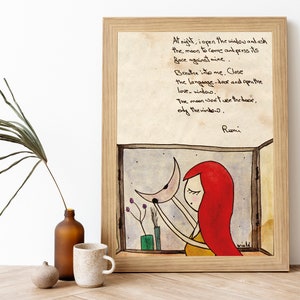 At night, i open the window and ask
the moon to come and press its
face against mine.
Breathe into me. Close
the language-door and open the
love-window.
The moon won't use the door,
only the window.
Rumi